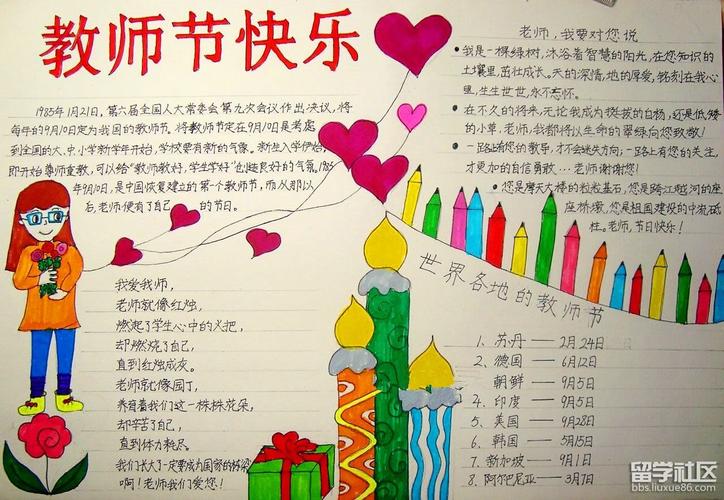 教师节快乐
1985年1月21日,第六届全国人大常委会第九次会议作出决议,将
每年的9月10日定为我国的教师节。将教师节定在9月10日是考虑
到全国的大、中、小学新学年开始,学校要有新的气象。新生入学伊始,
即开始尊师重教,可以给“教师教好,学生学好”创造良好的气氛。1985
年9月10日,是中国恢复建立的第一个教师节,而从那以
后,老师便有了自己的节日。
我爱我师,
老师就像红烛,
燃起了学生心中的火把,
却燃烧了自己,
直到红烛成灰。
老师就像园丁,
养育着我们这一株株花朵,
却辛苦了自己,
直到体力耗尽。
我们长大了一定要成为国家的栋梁
啊!老师我们爱您!
老师,我要对您说
我是一棵绿树,沐浴着智慧的阳光,在您知识的
土壤里,茁壮成长。天的深情,地的厚爱,铭刻在我心
里,生生世世,永不忘怀。
在不久的将来,无论我成为挺拔的白杨,还是低矮
的小草,老师,我都将以生命的翠绿向您致敬!
一路上有您的教导,才不会迷失方向;一路上有您的关注,
才更加的自信勇敢…老师谢谢您!
您是摩天大楼的粒粒基石,您是跨江越河的座
座桥墩,您是祖国建设的中流砥
柱。老师,节日快乐!
世界各地的教师节
1、苏丹——2月24日
2、德国——6月12日
朝鲜——9月5日
4、印度——9月5日
5、美国——9月28日
6、韩国——5月15日
7、新加坡——9月1日
8、阿尔巴尼亚——3月7日
留学社区
bbs.liuxue86.com